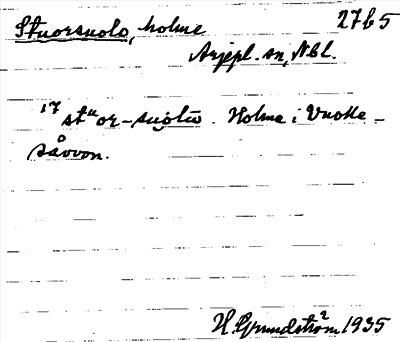 Stuorsuolo, holme 27b5
Arjepl. sn, Nbl.
17 stᵘor-suolu. Holme i Vuolle-
såvvon.
H. Grundström 1935